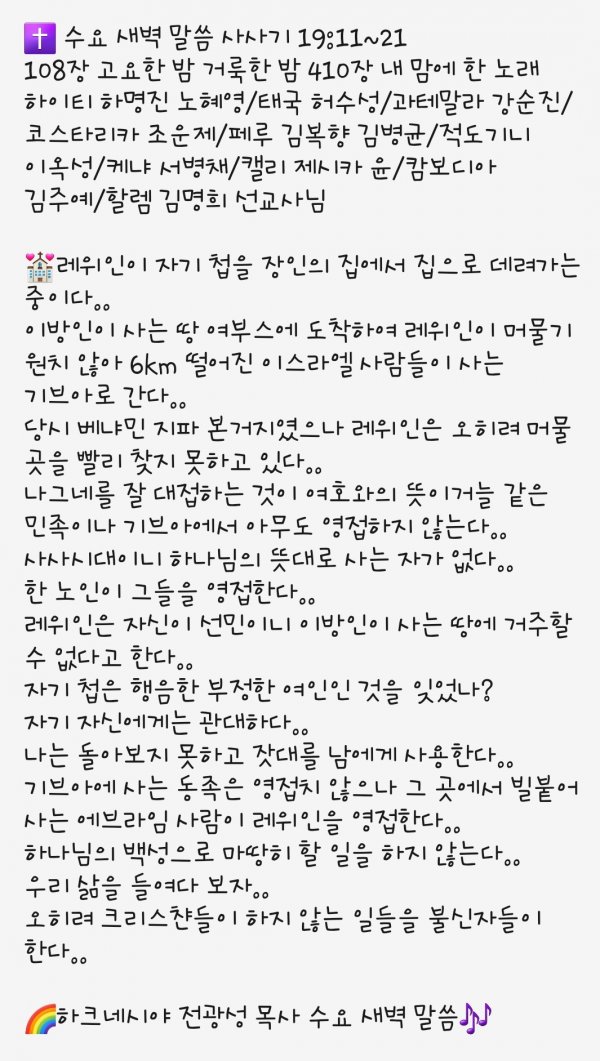 ✝️ 수요 새벽 말씀 사사기 19:11~21
108장 고요한 밤 거룩한 밤 410장 내 맘에 한 노래
하이티 하명진 노혜영/태국 허수성/과테말라 강순진/
코스타리카 조운제/페루 김복향 김병균/적도기니
이옥성/케냐 서병채/캘리 제시카 윤/캄보디아
김주예/할렘 김명희 선교사님

💒레위인이 자기 첩을 장인의 집에서 집으로 데려가는
중이다..
이방인이 사는 땅 여부스에 도착하여 레위인이 머물기
원치 않아 6km 떨어진 이스라엘 사람들이 사는
기브아로 간다..
당시 베냐민 지파 본거지였으나 레위인은 오히려 머물
곳을 빨리 찾지 못하고 있다..
나그네를 잘 대접하는 것이 여호와의 뜻이거늘 같은
민족이나 기브아에서 아무도 영접하지 않는다..
사사시대이니 하나님의 뜻대로 사는 자가 없다..
한 노인이 그들을 영접한다..
레위인은 자신이 선민이니 이방인이 사는 땅에 거주할
수 없다고 한다..
자기 첩은 행음한 부정한 여인인 것을 잊었나?
자기 자신에게는 관대하다..
나는 돌아보지 못하고 잣대를 남에게 사용한다..
기브아에 사는 동족은 영접치 않으나 그 곳에서 빌붙어
사는 에브라임 사람이 레위인을 영접한다..
하나님의 백성으로 마땅히 할 일을 하지 않는다..
우리 삶을 들여다 보자..
오히려 크리스챤들이 하지 않는 일들을 불신자들이
한다..

🌈하크네시야 전광성 목사 수요 새벽 말씀🎶